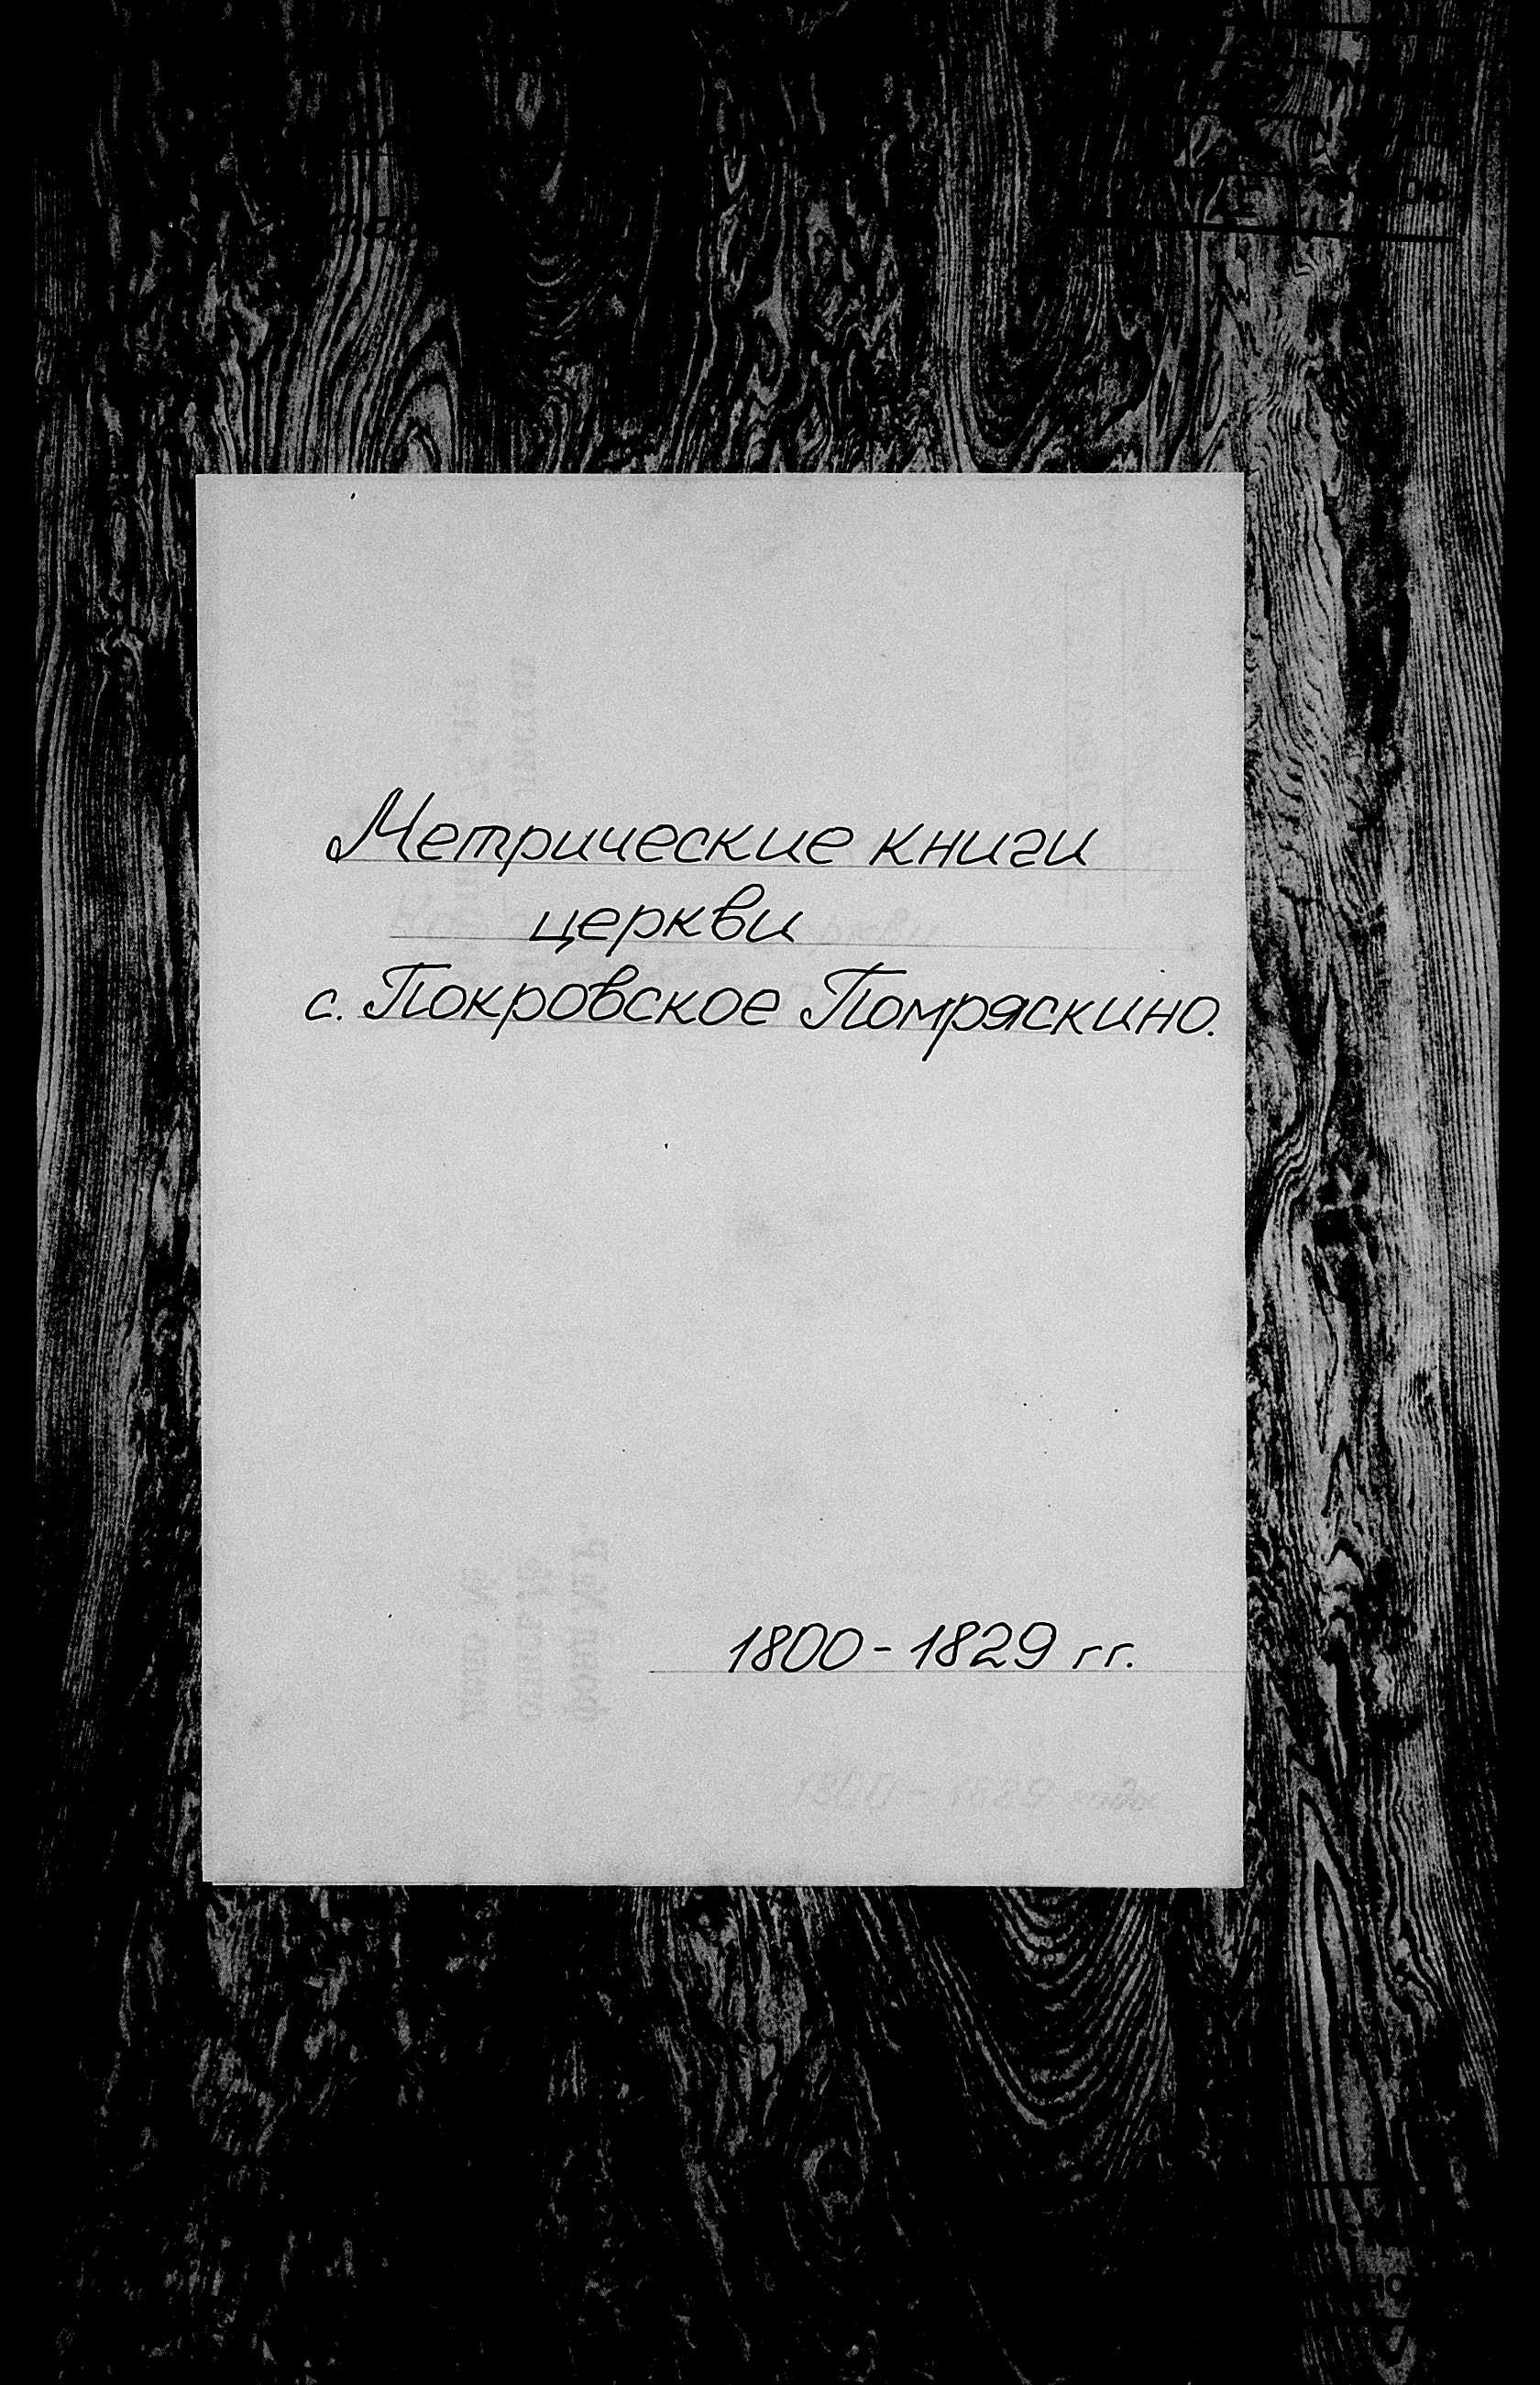 Метрические книги
церкви
с. Покровское Помряскино.
1800-1829 гг.
1800 - 1829 годы